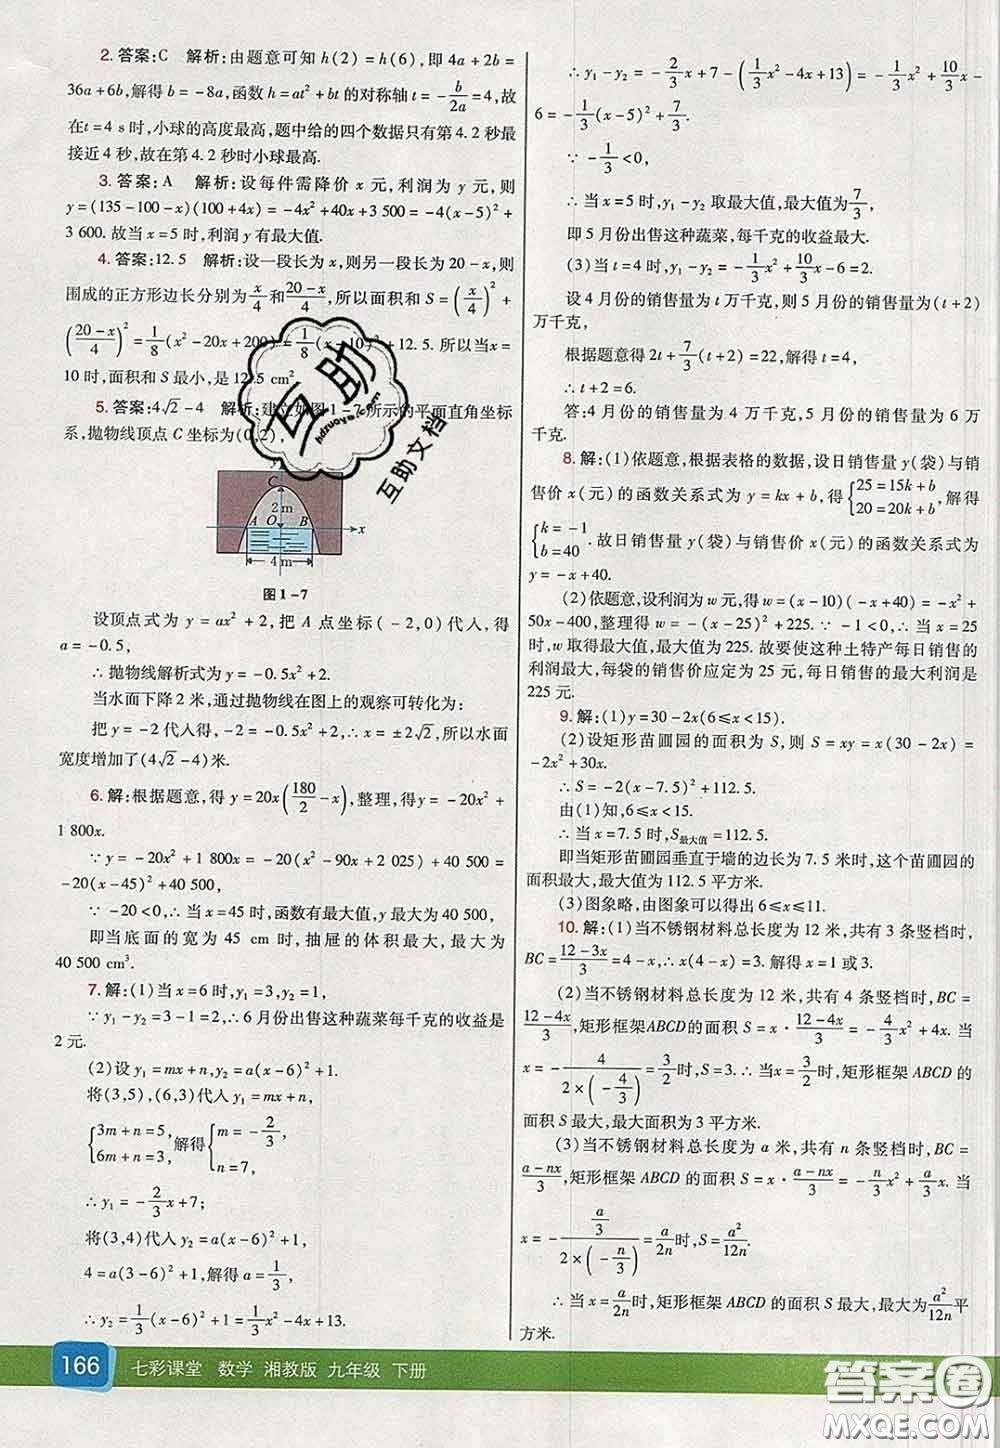 2. 答案:C 解析:由题意可知 h(2)=h(6),即 4a+2b=
36a+6b,解得 b=-8a,函数 h=at²+bt 的对称轴 t=-b/2a=4,故
在 t=4 s 时,小球的高度最高,题中给的四个数据只有第 4.2 秒最
接近 4 秒,故在第 4.2 秒时小球最高.
3. 答案:A 解析:设每件需降价 x 元,利润为 y 元,则
y=(135-100-x)(100+4x)=-4x²+40x+3 500=-4(x-5)²+
3 600. 故当 x=5 时,利润 y 有最大值.
4. 答案:12.5 解析:设一段长为 x,则另一段长为 20-x,则
围成的正方形边长分别为 x/4 和 (20-x)/4,所以面积和 S=(x/4)²+
((20-x)/4)²=1/8(x²-20x+200)=1/8(x-10)²+12.5. 所以当 x=
10 时,面积和 S 最小,是 12.5 cm²
5. 答案:4√2-4 解析:建立如图 1-7 所示的平面直角坐标
系,抛物线顶点 C 坐标为(0,2),
y
C
2 m
A O B x
4 m
图 1-7
设顶点式为 y=ax²+2,把 A 点坐标(-2,0)代入,得
a=-0.5,
∴抛物线解析式为 y=-0.5x²+2.
当水面下降 2 米,通过抛物线在图上的观察可转化为:
把 y=-2 代入得,-2=-0.5x²+2,得 x=±2√2,所以水面
宽度增加了(4√2-4)米.
6. 解:根据题意,得 y=20x(180/2-x),整理,得 y=-20x²+
1 800x.
∵y=-20x²+1 800x=-20(x²-90x+2 025)+40 500=
-20(x-45)²+40 500,
∵-20<0,∴当 x=45 时,函数有最大值,最大值为 40 500,
即当底面的宽为 45 cm 时,抽屉的体积最大,最大为
40 500 cm³.
7. 解:(1)当 x=6 时,y₁=3,y₂=1,
∵y₁-y₂=3-1=2,∴6 月份出售这种蔬菜每千克的收益是
2 元.
(2)设 y₁=mx+n,y₂=a(x-6)²+1.
将(3,5),(6,3)代入 y₁=mx+n,
{3m+n=5, 6m+n=3, 解得 {m=-2/3, n=7,
∴y₁=-2/3x+7;
将(3,4)代入 y₂=a(x-6)²+1,
4=a(3-6)²+1,解得 a=1/3,
∴y₂=1/3(x-6)²+1=1/3x²-4x+13.
∴y₁-y₂=-2/3x+7-(1/3x²-4x+13)=-1/3x²+10/3x-
6=-1/3(x-5)²+7/3.
∵-1/3<0,
∴当 x=5 时,y₁-y₂ 取最大值,最大值为 7/3,
即 5 月份出售这种蔬菜,每千克的收益最大.
(3)当 t=4 时,y₁-y₂=-1/3x²+10/3x-6=2.
设 4 月份的销售量为 t 万千克,则 5 月份的销售量为(t+2)
万千克,
根据题意得 2t+7/3(t+2)=22,解得 t=4,
∴t+2=6.
答:4 月份的销售量为 4 万千克,5 月份的销售量为 6 万
千克.
8. 解:(1)依题意,根据表格的数据,设日销售量 y(袋)与销
售价 x(元)的函数关系式为 y=kx+b,得 {25=15k+b 20=20k+b,解得
{k=-1 b=40. 故日销售量 y(袋)与销售价 x(元)的函数关系式为
y=-x+40.
(2)依题意,设利润为 w 元,得 w=(x-10)(-x+40)=-x²+
50x-400,整理得 w=-(x-25)²+225. ∵-1<0,∴当 x=25
时,w 取得最大值,最大值为 225. 故要使这种土特产每日销售的
利润最大,每袋的销售价应定为 25 元,每日销售的最大利润是
225 元.
9. 解:(1)y=30-2x(6≤x<15).
(2)设矩形苗圃园的面积为 S,则 S=xy=x(30-2x)=
-2x²+30x.
∴S=-2(x-7.5)²+112.5.
由(1)知,6≤x<15.
∴当 x=7.5 时,S最大值=112.5.
即当矩形苗圃园垂直于墙的边长为 7.5 米时,这个苗圃园的
面积最大,最大值为 112.5 平方米.
(3)图象略,由图象可以得出 6≤x≤11.
10. 解:(1)当不锈钢材料总长度为 12 米,共有 3 条竖档时,
BC=(12-3x)/3=4-x,∴x(4-x)=3. 解得 x=1 或 3.
(2)当不锈钢材料总长度为 12 米,共有 4 条竖档时,BC=
(12-4x)/3,矩形框架ABCD的面积 S=x·(12-4x)/3=-4/3x²+4x. 当
x=-4/(2×(-4/3))=3/2时,S=3. ∴当 x=3/2时,矩形框架 ABCD 的
面积 S 最大,最大面积为 3 平方米.
(3)当不锈钢材料总长度为 a 米,共有 n 条竖档时,BC=
(a-nx)/3,矩形框架 ABCD 的面积 S=x·(a-nx)/3=-n/3x²+a/3x. 当
x=-(a/3)/(2×(-n/3))=a/2n时,S=a²/12n.
∴当 x=a/2n时,矩形框架 ABCD 的面积 S 最大,最大为a²/12n平
方米.
166 七彩课堂 数学 湘教版 九年级 下册
互助
hdzuoye.com
互助文档
答案圈
MXQE.COM